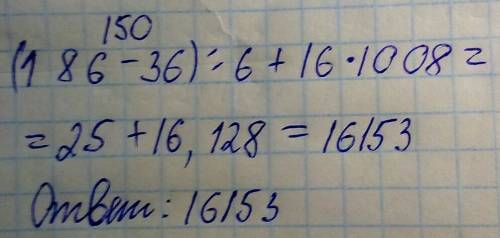 150
(186-36):6+16·1008=
=25+16,128=16153
Ответ: 16153